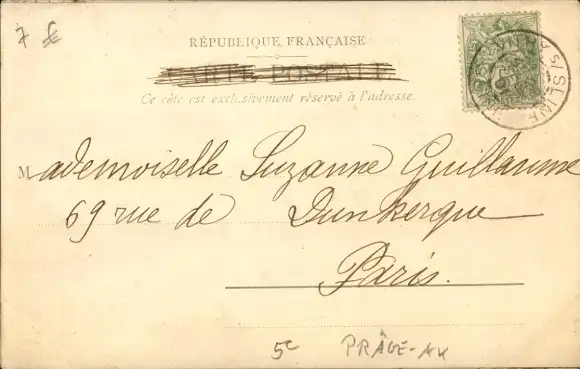 7 €
RÉPUBLIQUE FRANÇAISE
CARTE POSTALE
Ce côté est exclusivement réservé à l'adresse.
Mademoiselle Suzanne Guillaume
69 rue de Dunkerque
Paris.
5c PRÂGE-AK